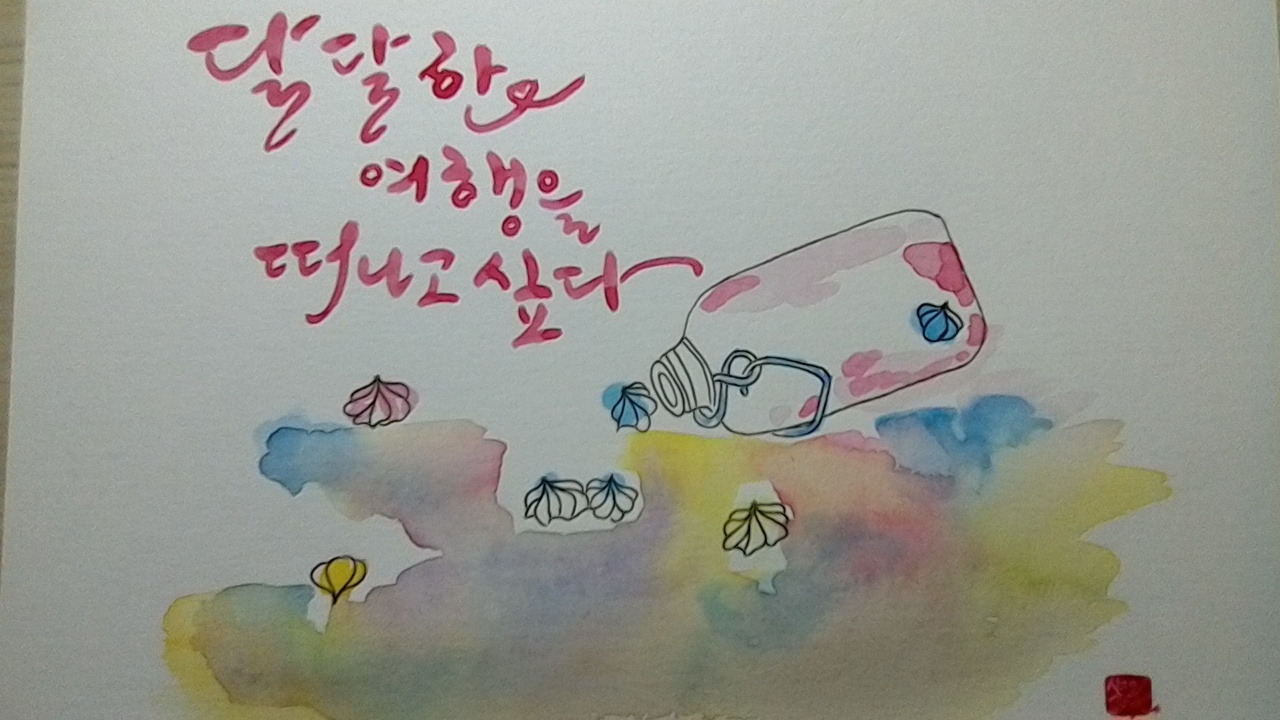 달달한
여행을
떠나고 싶다